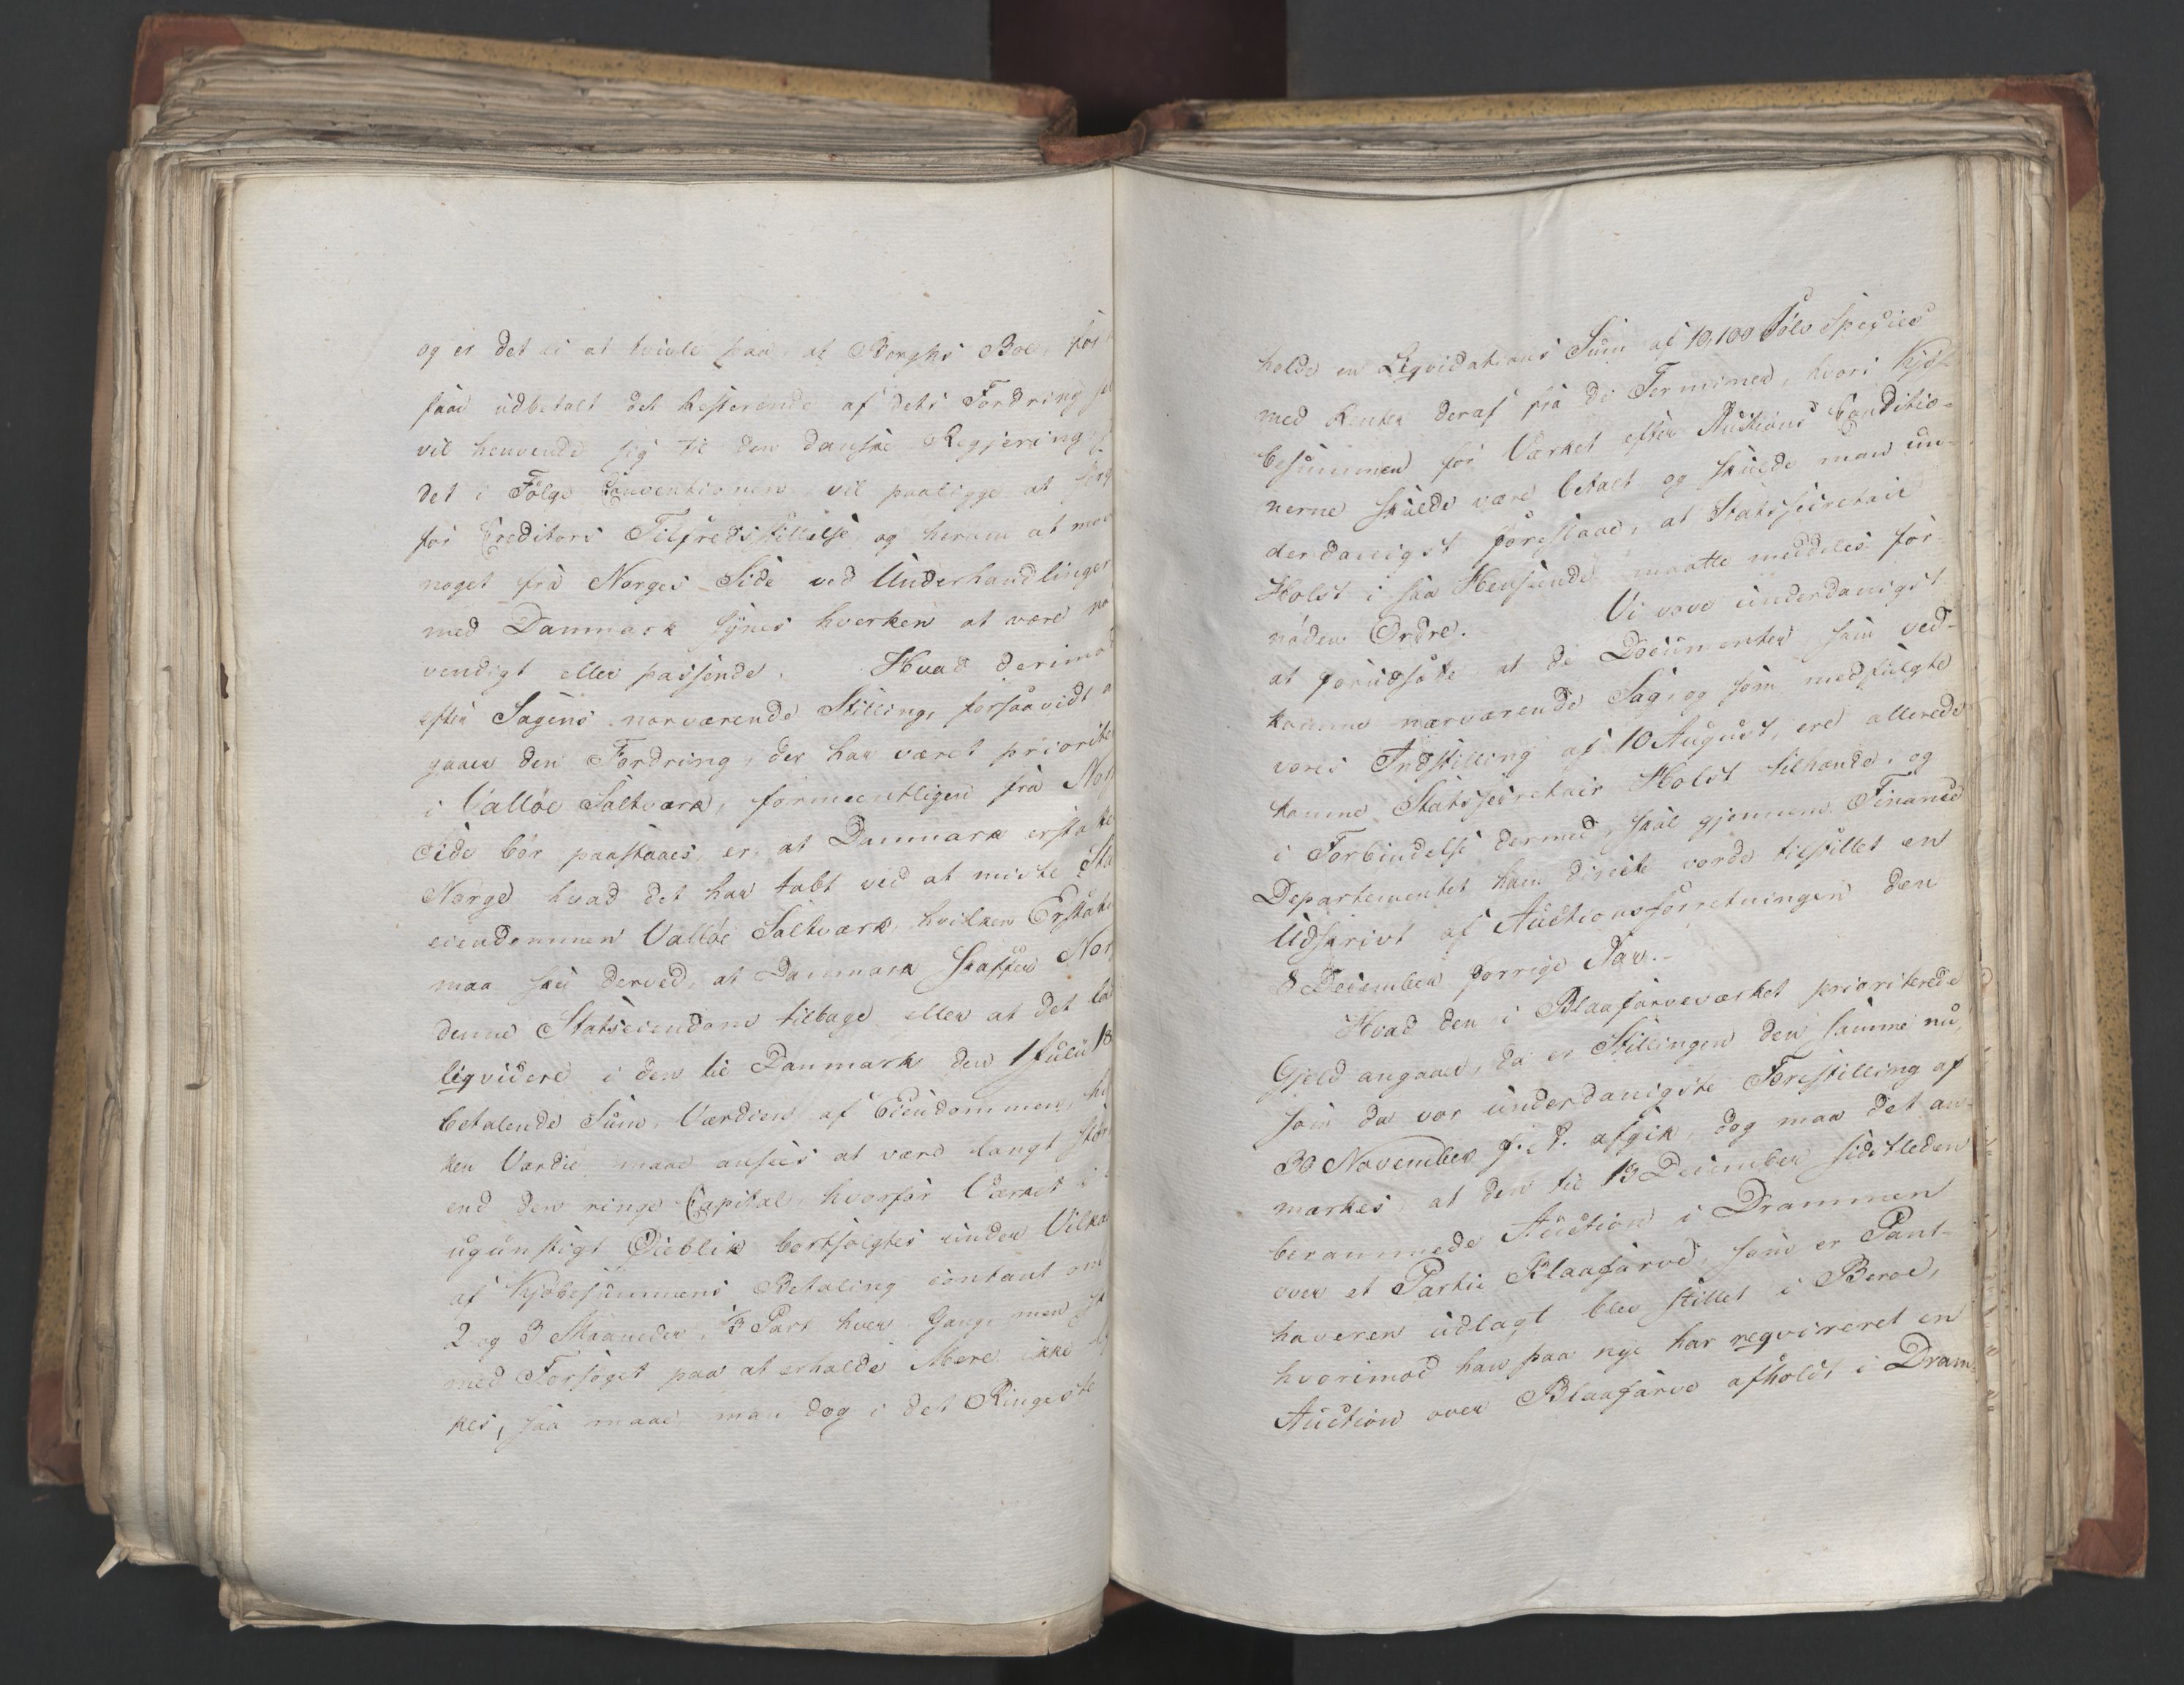 og er det ei at tvivle paa, at Borghs Boe, for
faae udbetalt det Resterende af dets Fordring
vil henvende sig til den danske Regjering
det i Følge Conventionen vil paaligge at sørg
for Creditors Tilfredsstillelse, og herom at
noget fra Norges Side ved Underhandlinger
med Danmark synes hverken at være nø
vendigt eller passende. Hvad derimod
efter Sagens nærværende Stilling, forsaavidt
gaaer den Fordring, der har været priorite
i Valløe Saltværk, formeentligen fra Nor
Side bør paastaaes, er, at Danmark erstatte
Norge hvad det har tabt ved at miste Sta
eiendommen Valløe Saltværk, hvilken Erstatn
maa skee derved, at Danmark skaffer Nor
denne Statseiendom tilbage eller at det lad
liqvidere i den til Danmark den 1 Julii 18
betalende Sum, Værdien af Eiendommen, hvil
ken Værdie maae ansees at være langt stør
end den ringe Capital, hvorfor Værket i
ugunstigt Øieblik bortsolgtes under Vilka
af Kjøbesummens Betaling contant om
2 og 3 Maaneder, ⅓ Part hver Gang, men
med Forsøget paa at erholde Mere ikke
kes, saa maae man dog i det Ringeste
holde en Liqvidations Sum af 10,100 Sølv Species
med Renter deraf fra de Terminer, hvori Kjø-
besummen for Værket efter Auctions Conditio-
nerne skulde være betalt og skulde man un-
derdanigst foreslaae, at Statssecretair
Holst i saa Henseende maatte meddeles for-
nøden Ordre. Vi vove underdanigst
at forudsætte at de Documenter som ved-
komme nærværende Sag, og som medfulgte
vores Indstilling af 10 August, ere allerede
komne Statssecretair Holst tilhænde, og
i Forbindelse dermed, skal gjennem Finance
Departementet ham directe vorde tilstillet en
Udskrivt af Auctionsforretningen den
8 December forrige Aar.-
Hvad den i Blaafarveværket prioriterede
Gjeld angaaer, da er Stillingen den samme nu,
som da vor underdanigste Forestilling af
30 November f: A. afgik, dog maa det an-
mærkes, at den til 13 December sidstleden
berammede Auction i Drammen
over et Partie Blaafarve, som er Pant-
haveren udlagt blev stillet i Beroe,
hvorimod han paa nye har reqvireret en
Auction over Blaafarve afholdt i Dram-